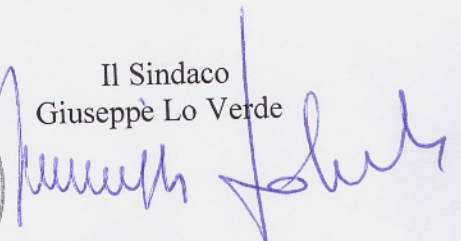 Il Sindaco
Giuseppe Lo Verde